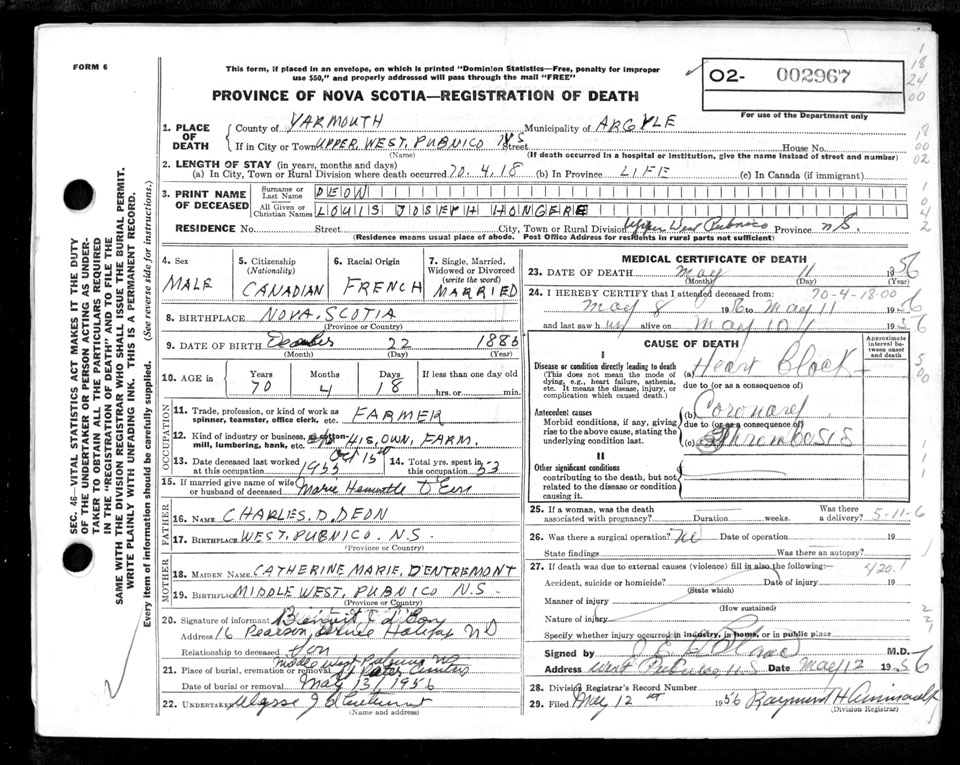 FORM 6
This form, if placed in an envelope, on which is printed "Dominion Statistics—Free, penalty for improper
use $50," and properly addressed will pass through the mail "FREE"
O2- 002967
For use of the Department only
PROVINCE OF NOVA SCOTIA—REGISTRATION OF DEATH
1. PLACE OF DEATH
County of YARMOUTH Municipality of ARGYLE
If in City or Town UPPER, WEST, PUBNICO N.S Street House No.
(Name) (If death occurred in a hospital or institution, give the name instead of street and number)
2. LENGTH OF STAY (in years, months and days)
(a) In City, Town or Rural Division where death occurred 70.4.18 (b) In Province LIFE (c) In Canada (if immigrant)
3. PRINT NAME OF DECEASED
Surname or Last Name DEON
All Given or Christian Names LOUIS JOSEPH HONGERE
RESIDENCE No. Street City, Town or Rural Division Upper West Pubnico Province NS.
(Residence means usual place of abode. Post Office Address for residents in rural parts not sufficient)
4. Sex MALE
5. Citizenship (Nationality) CANADIAN
6. Racial Origin FRENCH
7. Single, Married, Widowed or Divorced (write the word) MARRIED
8. BIRTHPLACE NOVA, SCOTIA
(Province or Country)
9. DATE OF BIRTH December 22 1885
(Month) (Day) (Year)
10. AGE in Years 70 Months 4 Days 18 If less than one day old hrs. or min.
OCCUPATION
11. Trade, profession, or kind of work as spinner, teamster, office clerk, etc. FARMER
12. Kind of industry or business, cotton-mill, lumbering, bank, etc. HIS, OWN, FARM.
13. Date deceased last worked at this occupation Oct 15th 1955
14. Total yrs. spent in this occupation 53
15. If married give name of wife or husband of deceased Marie D'Eon
FATHER
16. NAME CHARLES, D. DEON
17. BIRTHPLACE WEST, PUBNICO. N.S.
(Province or Country)
MOTHER
18. MAIDEN NAME CATHERINE MARIE, D'ENTREMONT
19. BIRTHPLACE MIDDLE WEST, PUBNICO N.S.
(Province or Country)
20. Signature of informant d'Eon
Address 16 Pearson Halifax NS
Relationship to deceased Son
21. Place of burial, cremation or removal Middle West Pubnico NS St Peter Cemetery
Date of burial or removal May 13, 1956
22. UNDERTAKER
(Name and address)
MEDICAL CERTIFICATE OF DEATH
23. DATE OF DEATH May 11 1956
(Month) (Day) (Year)
24. I HEREBY CERTIFY that I attended deceased from: 70-4-18-00
May 8 1956 to May 11 1956
and last saw him alive on May 10 1956
CAUSE OF DEATH
Approximate interval between onset and death
I
Disease or condition directly leading to death
(This does not mean the mode of dying, e.g., heart failure, asthenia, etc. It means the disease, injury, or complication which caused death.)
(a) Heart Block
due to (or as a consequence of)
Antecedent causes
Morbid conditions, if any, giving rise to the above cause, stating the underlying condition last.
(b) Coronary
due to (or as a consequence of)
(c) Thrombosis
II
Other significant conditions
contributing to the death, but not related to the disease or condition causing it.
25. If a woman, was the death associated with pregnancy? Duration weeks. Was there a delivery? 5-11-6
26. Was there a surgical operation? No Date of operation 19
State findings Was there an autopsy?
27. If death was due to external causes (violence) fill in also the following:— 420.1
Accident, suicide or homicide? Date of injury 19
(State which)
Manner of injury
(How sustained)
Nature of injury
Specify whether injury occurred in industry, in home, or in public place
Signed by M.D.
Address West Pubnico, N.S Date May 12 1956
28. Division Registrar's Record Number
29. Filed May 12th 1956 Raymond H Amirault
(Division Registrar)
SEC. 46—VITAL STATISTICS ACT MAKES IT THE DUTY
OF THE UNDERTAKER OR PERSON ACTING AS UNDER-
TAKER TO OBTAIN ALL THE PARTICULARS REQUIRED
IN THE "REGISTRATION OF DEATH" AND TO FILE THE
SAME WITH THE DIVISION REGISTRAR WHO SHALL ISSUE THE BURIAL PERMIT.
WRITE PLAINLY WITH UNFADING INK. THIS IS A PERMANENT RECORD.
Every item of information should be carefully supplied. (See reverse side for instructions.)